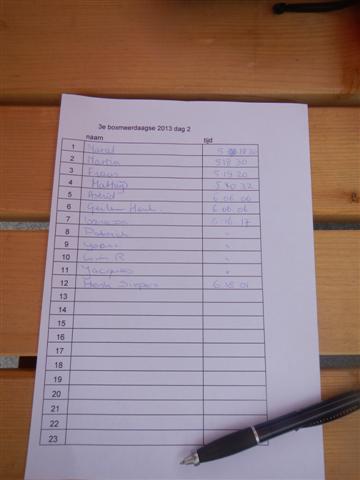 3e boxmeerdaagse 2013 dag 2
naam tijd
1 5 18 30
2 Martin 5 18 30
3 Frans 5 19 20
4 Mattijs 5 40 32
5 Astrid 6 06 06
6 Henk 6 06 06
7 6 16 17
8 Patrick "
9 "
10 Wim R "
11 Jacques "
12 Henk Simons 6 38 01
13
14
15
16
17
18
19
20
21
22
23